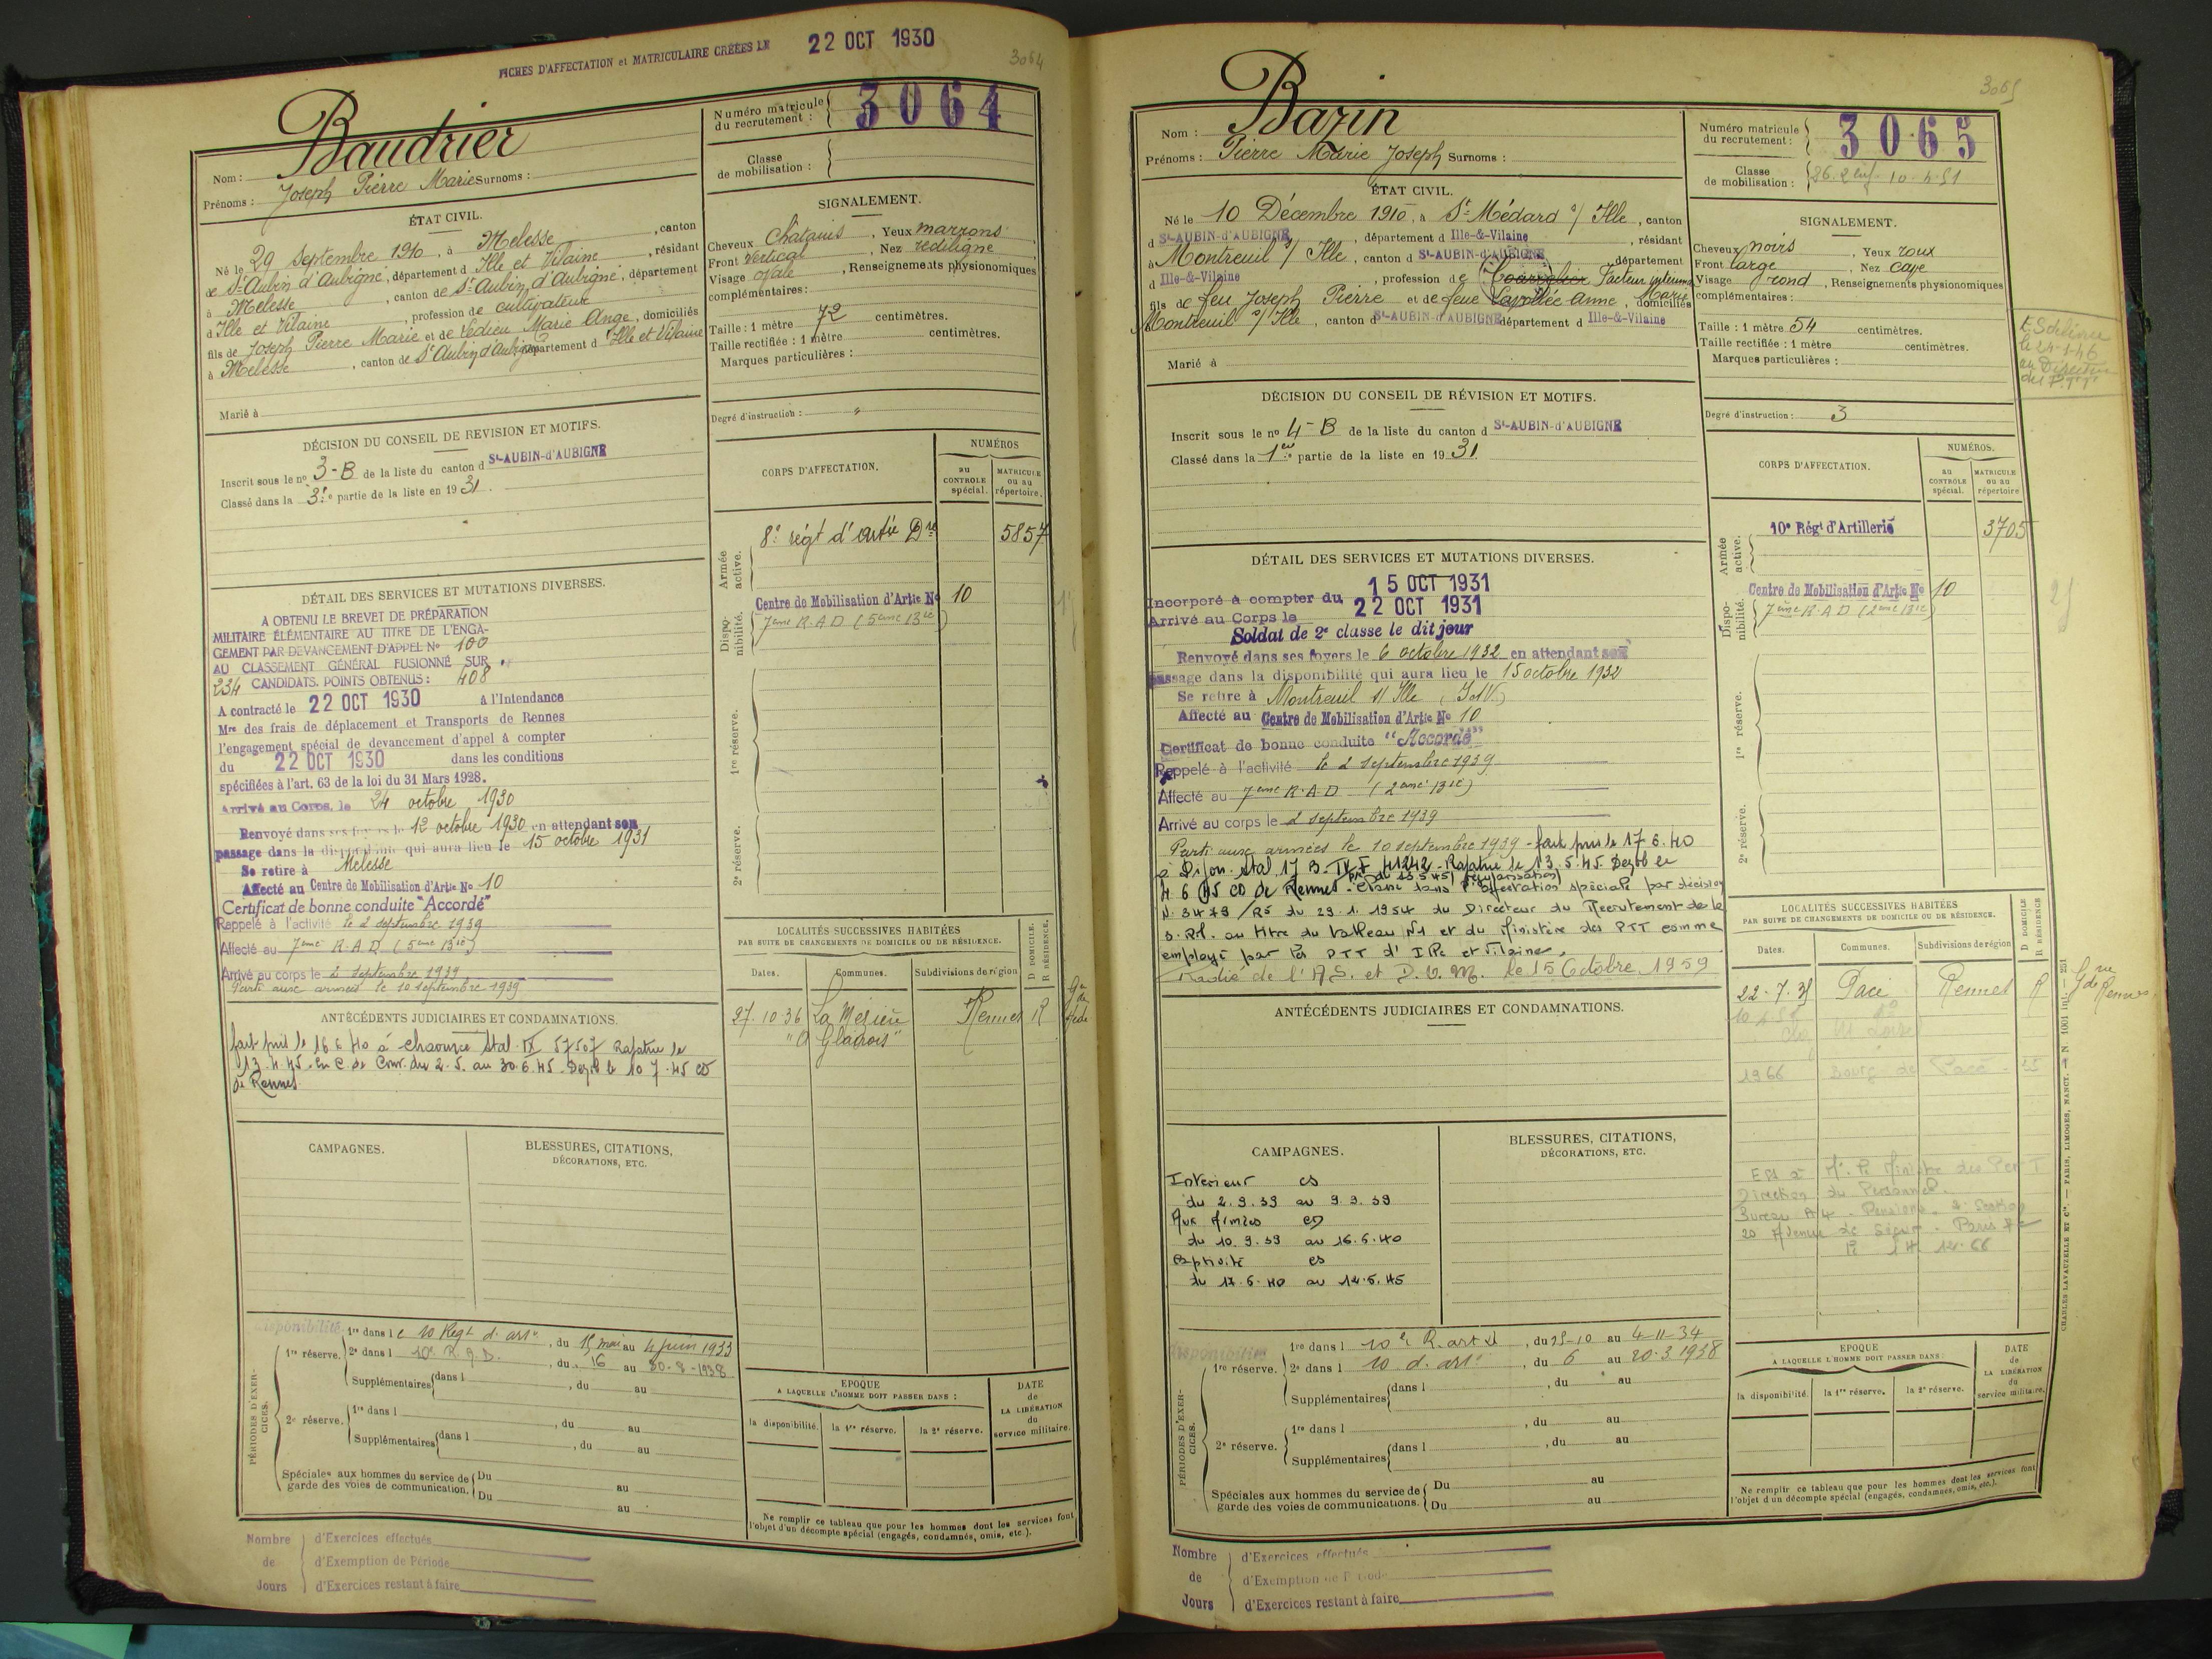 FICHES D'AFFECTATION et MATRICULAIRE CRÉÉES LE 22 OCT 1930
3064
Nom : Baudrier
Prénoms : Joseph Pierre Marie Surnoms :
Numéro matricule du recrutement : 3064
Classe de mobilisation :
ÉTAT CIVIL.
Né le 29 Septembre 1910, à Melesse, canton
de St-Aubin d'Aubigné, département d Ille et Vilaine, résidant
à Melesse, canton de St-Aubin d'Aubigné, département
d Ille et Vilaine, profession de cultivateur
fils de Joseph Pierre Marie et de Ledieu Marie Ange, domiciliés
à Melesse, canton de St Aubin d'Aubigné département d Ille et Vilaine
Marié à
SIGNALEMENT.
Cheveux Châtains, Yeux marrons
Front vertical, Nez rectiligne
Visage ovale, Renseignements physionomiques
complémentaires :
Taille : 1 mètre 72 centimètres.
Taille rectifiée : 1 mètre centimètres.
Marques particulières :
Degré d'instruction : "
DÉCISION DU CONSEIL DE REVISION ET MOTIFS.
Inscrit sous le no 3-B de la liste du canton d St-AUBIN-d'AUBIGNE
Classé dans la 3e partie de la liste en 1931.
DÉTAIL DES SERVICES ET MUTATIONS DIVERSES.
A OBTENU LE BREVET DE PRÉPARATION
MILITAIRE ÉLÉMENTAIRE AU TITRE DE L'ENGA-
GEMENT PAR DEVANCEMENT D'APPEL No 100
AU CLASSEMENT GÉNÉRAL FUSIONNÉ SUR
234 CANDIDATS. POINTS OBTENUS : 408
A contracté le 22 OCT 1930 à l'Intendance
Mre des frais de déplacement et Transports de Rennes
l'engagement spécial de devancement d'appel à compter
du 22 OCT 1930 dans les conditions
spécifiées à l'art. 63 de la loi du 31 Mars 1928.
Arrivé au Corps, le 24 octobre 1930
Renvoyé dans ses foyers le 12 octobre 1930 en attendant son
passage dans la disponibilité qui aura lieu le 15 octobre 1931
Se retire à Melesse
Affecté au Centre de Mobilisation d'Artie No 10
Certificat de bonne conduite "Accordé"
Rappelé à l'activité le 2 septembre 1939
Affecté au 7ème R.A.D. (5ème Bie)
Arrivé au corps le 2 septembre 1939
Parti aux armées le 10 septembre 1939
ANTÉCÉDENTS JUDICIAIRES ET CONDAMNATIONS.
fait pris le 16 6 40 à Chaource Stal IX 57507 Rapatrié le
13.4.45. En C. de Conv. du 2.5. au 30.6.45. Dezob le 10 7.45 CD
de Rennes
CORPS D'AFFECTATION.
NUMÉROS
au CONTROLE spécial.
MATRICULE ou au répertoire.
Armée active.
8e régt d'artie Dre 5857
Disponibilité.
Centre de Mobilisation d'Artie No 10
7ème R.A.D (5ème Bie)
1re réserve.
2e réserve.
LOCALITÉS SUCCESSIVES HABITÉES
PAR SUITE DE CHANGEMENTS DE DOMICILE OU DE RÉSIDENCE.
D DOMICILE.
R RÉSIDENCE.
Dates. Communes. Subdivisions de région
27.10.36 La Mézière Rennes R
CAMPAGNES.
BLESSURES, CITATIONS,
DÉCORATIONS, ETC.
PÉRIODES D'EXERCICES.
disponibilité
1re réserve. 1re dans le 10 Regt d. arte, du 15 mai au 4 juin 1933
2e dans l 10e R.A.D., du 16 au 30-8-1938
Supplémentaires dans l , du au
2e réserve. 1re dans l , du au
Supplémentaires dans l , du au
Spéciales aux hommes du service de garde des voies de communication. Du au
Du au
EPOQUE
A LAQUELLE L'HOMME DOIT PASSER DANS :
la disponibilité. la 1re réserve. la 2e réserve.
DATE de LA LIBÉRATION du service militaire.
Ne remplir ce tableau que pour les hommes dont les services font
l'objet d'un décompte spécial (engagés, condamnés, omis, etc.).
Nombre de Jours
d'Exercices effectués
d'Exemption de Période
d'Exercices restant à faire
3065
Nom : Bazin
Prénoms : Pierre Marie Joseph Surnoms :
Numéro matricule du recrutement : 3065
Classe de mobilisation :
ÉTAT CIVIL.
Né le 10 Décembre 1910, à St-Médard s/ Ille, canton
d St-AUBIN-d'AUBIGNE, département d Ille-&-Vilaine, résidant
à Montreuil s/ Ille, canton d St-AUBIN-d'AUBIGNE département
d Ille-&-Vilaine, profession de Facteur
fils de feu Joseph Pierre et de feue Lavollée Anne, Marie domiciliés
Montreuil s/ Ille, canton d St-AUBIN-d'AUBIGNE département d Ille-&-Vilaine
Marié à
SIGNALEMENT.
Cheveux noirs, Yeux roux
Front large, Nez cave
Visage rond, Renseignements physionomiques
complémentaires :
Taille : 1 mètre 54 centimètres.
Taille rectifiée : 1 mètre centimètres.
Marques particulières :
Degré d'instruction : 3
le 24-1-46
au Directeur
des P.T.T
DÉCISION DU CONSEIL DE RÉVISION ET MOTIFS.
Inscrit sous le no 4-B de la liste du canton d St-AUBIN-d'AUBIGNE
Classé dans la 1ère partie de la liste en 1931
DÉTAIL DES SERVICES ET MUTATIONS DIVERSES.
Incorporé à compter du 15 OCT 1931
Arrivé au Corps le 22 OCT 1931
Soldat de 2e classe le dit jour
Renvoyé dans ses foyers le 6 octobre 1932 en attendant son
passage dans la disponibilité qui aura lieu le 15 octobre 1932
Se retire à Montreuil s/ Ille (I et V.)
Affecté au Centre de Mobilisation d'Artie No 10
Certificat de bonne conduite "Accordé"
Rappelé à l'activité le 2 septembre 1939
Affecté au 7ème R.A.D (2ème Bie)
Arrivé au corps le 2 septembre 1939
Parti aux armées le 10 septembre 1939 - fait pris le 17 6.40
à Dijon. Stal 17 B - IV.F 41242 - Rapatrié le 13.5.45 Dezob le
4 6 45 CD de Rennes. Classé dans l'affectation spéciale par décision
N. 3479 /RS du 29.1.1954 du Directeur du Recrutement de la
au titre du tableau N1 et du Ministère des PTT comme
employé par les PTT d'Ille et Vilaine.
Radié de l'A.S. et D.V.M. le 15 Octobre 1959
ANTÉCÉDENTS JUDICIAIRES ET CONDAMNATIONS.
CORPS D'AFFECTATION.
NUMÉROS.
au CONTROLE spécial.
MATRICULE ou au répertoire
Armée active.
10e Régt d'Artillerie 3705
Disponibilité.
Centre de Mobilisation d'Artie No 10
7ème R.A.D (2ème Bie)
1re réserve.
2e réserve.
LOCALITÉS SUCCESSIVES HABITÉES
PAR SUITE DE CHANGEMENTS DE DOMICILE OU DE RÉSIDENCE.
D DOMICILE
R RÉSIDENCE
Dates. Communes. Subdivisions de région
22-7.35 Pacé Rennes R
1966 Bourg de Pacé
Direction du Personnel.
Bureau A4 - Pensions - Section
20 Avenue de Ségur - Paris 7e
CAMPAGNES.
Intérieur cs
du 2.9.39 au 9.9.39
Aux Armées CD
du 10.9.39 au 16.6.40
Captivité cs
du 17.6.40 au 12.5.45
BLESSURES, CITATIONS,
DÉCORATIONS, ETC.
PÉRIODES D'EXERCICES.
disponibilité
1re réserve. 1re dans l 10e R.art d, du 25-10 au 4-11-34
2e dans l 10 d. arte, du 6 au 20-3 1938
Supplémentaires dans l , du au
2e réserve. 1re dans l , du au
Supplémentaires dans l , du au
Spéciales aux hommes du service de garde des voies de communications. Du au
Du au
EPOQUE
A LAQUELLE L'HOMME DOIT PASSER DANS :
la disponibilité. la 1re réserve. la 2e réserve.
DATE de LA LIBÉRATION du service militaire.
Ne remplir ce tableau que pour les hommes dont les services font
l'objet d'un décompte spécial (engagés, condamnés, omis, etc.).
CHARLES LAVAUZELLE ET Cie. — PARIS, LIMOGES, NANCY.
Nombre de Jours
d'Exercices effectués
d'Exemption de Période
d'Exercices restant à faire